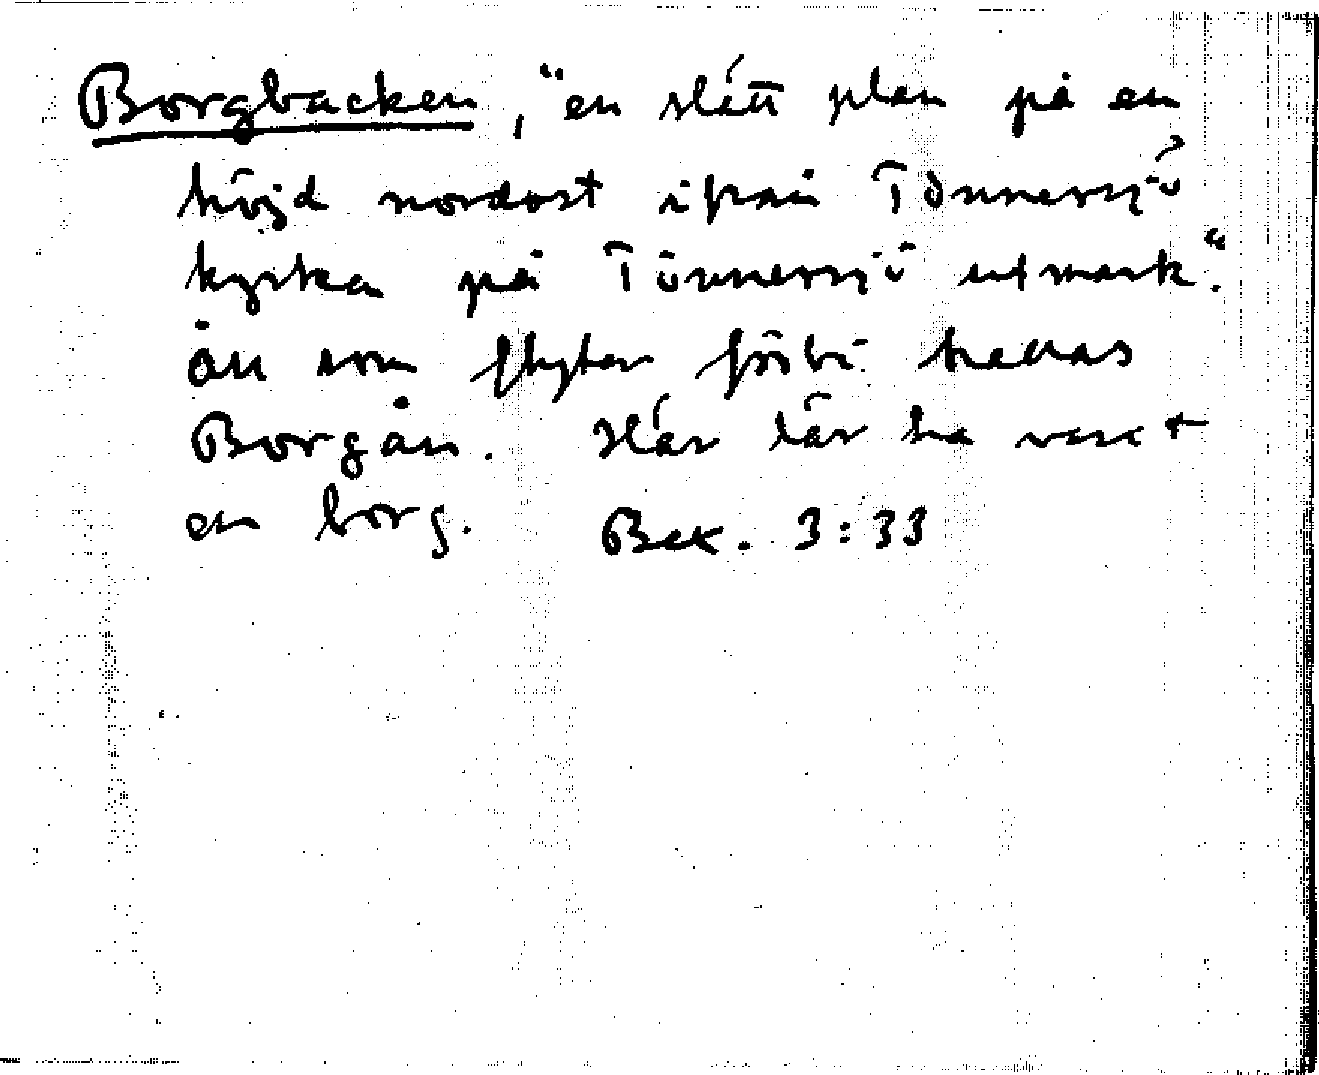 Borgbacken, "en slätt plan på en
höjd nordost ifrån Tönnersjö
kyrka på Tönnersjö utmark."
ån som flyter förbi kallas
Borgån. Här lär ha varit
en borg. Bex. 3:33